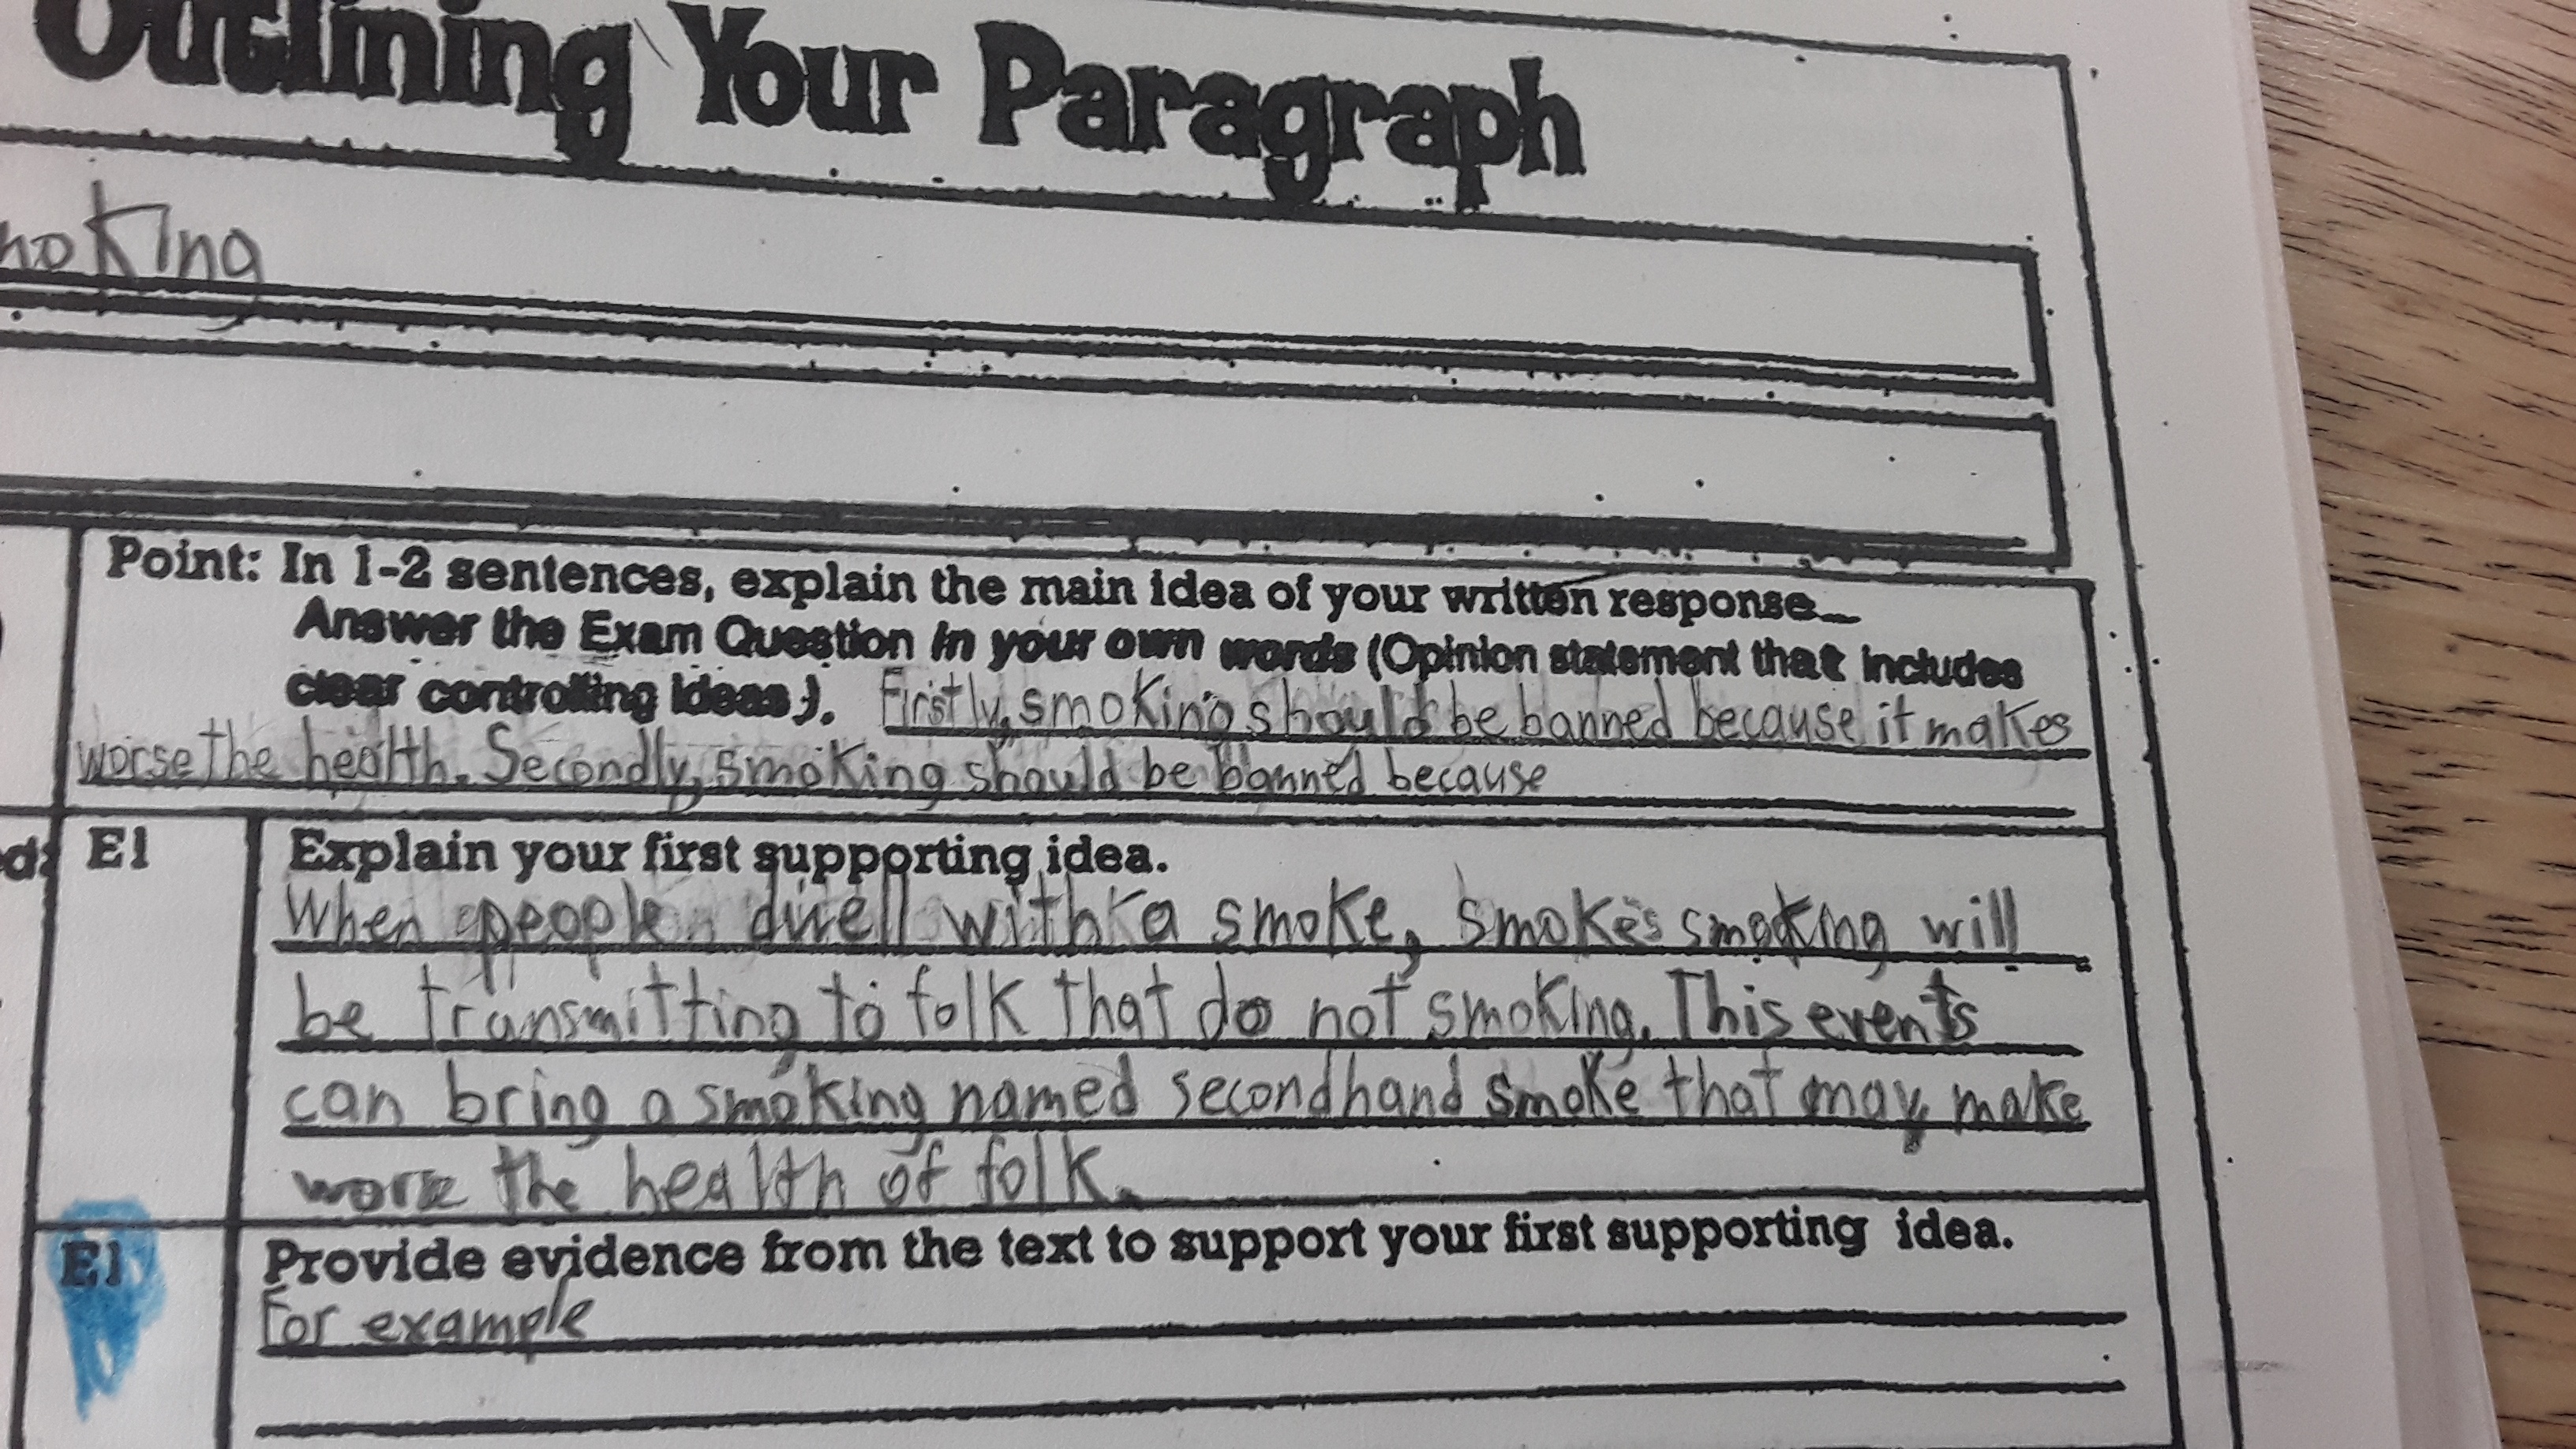 Outlining Your Paragraph
moking
Point: In 1-2 sentences, explain the main idea of your written response...
Answer the Exam Question in your own words (Opinion statement that includes
clear controlling ideas). Firstly, smoking should be banned because it makes
worse the health. Secondly, smoking should be banned because
ed:
E1
Explain your first supporting idea.
When people dwell with a smoke, smokes smoking will
be transmitting to folk that do not smoking. This events
can bring a smoking named secondhand smoke that may make
worse the health of folk.
E1
Provide evidence from the text to support your first supporting idea.
For example